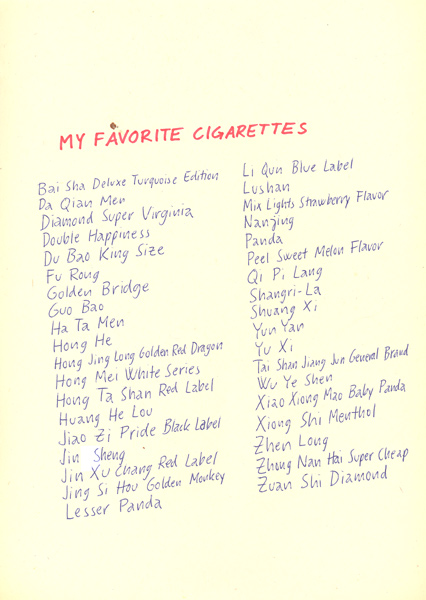 MY FAVORITE CIGARETTES
Bai Sha Deluxe Turquoise Edition
Da Qian Men
Diamond Super Virginia
Double Happiness
Du Bao King Size
Fu Rong
Golden Bridge
Guo Bao
Ha Ta Men
Hong He
Hong Jing Long Golden Red Dragon
Hong Mei White Series
Hong Ta Shan Red Label
Huang He Lou
Jiao Zi Pride Black Label
Jin Sheng
Jin Xu Chang Red Label
Jing Si Hou Golden Monkey
Lesser Panda
Li Qun Blue Label
Lushan
Mix Lights Strawberry Flavor
Nanjing
Panda
Peel Sweet Melon Flavor
Qi Pi Lang
Shangri-La
Shuang Xi
Yun Yan
Yu Xi
Tai Shan Jiang Jun General Brand
Wu Ye Shen
Xiao Xiong Mao Baby Panda
Xiong Shi Menthol
Zhen Long
Zhong Nan Hai Super Cheap
Zuan Shi Diamond